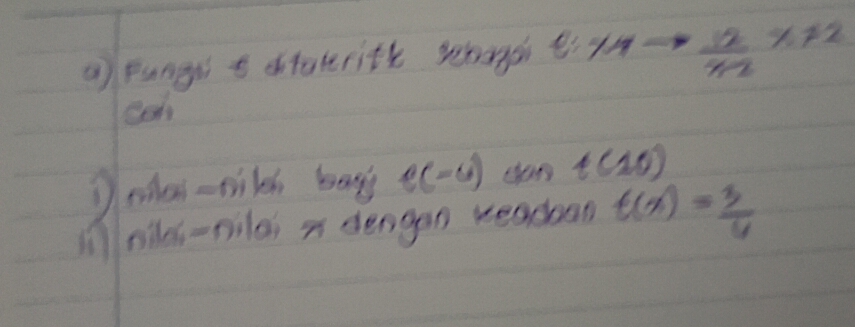 a) Fungsi t ditakrifk sebagai t: x → 12/x-2 x≠2
cari
i) nilai-nilai bagi t(-4) dan t(10)
ii) nilai-nilai x dengan keadaan t(x) = 3/4